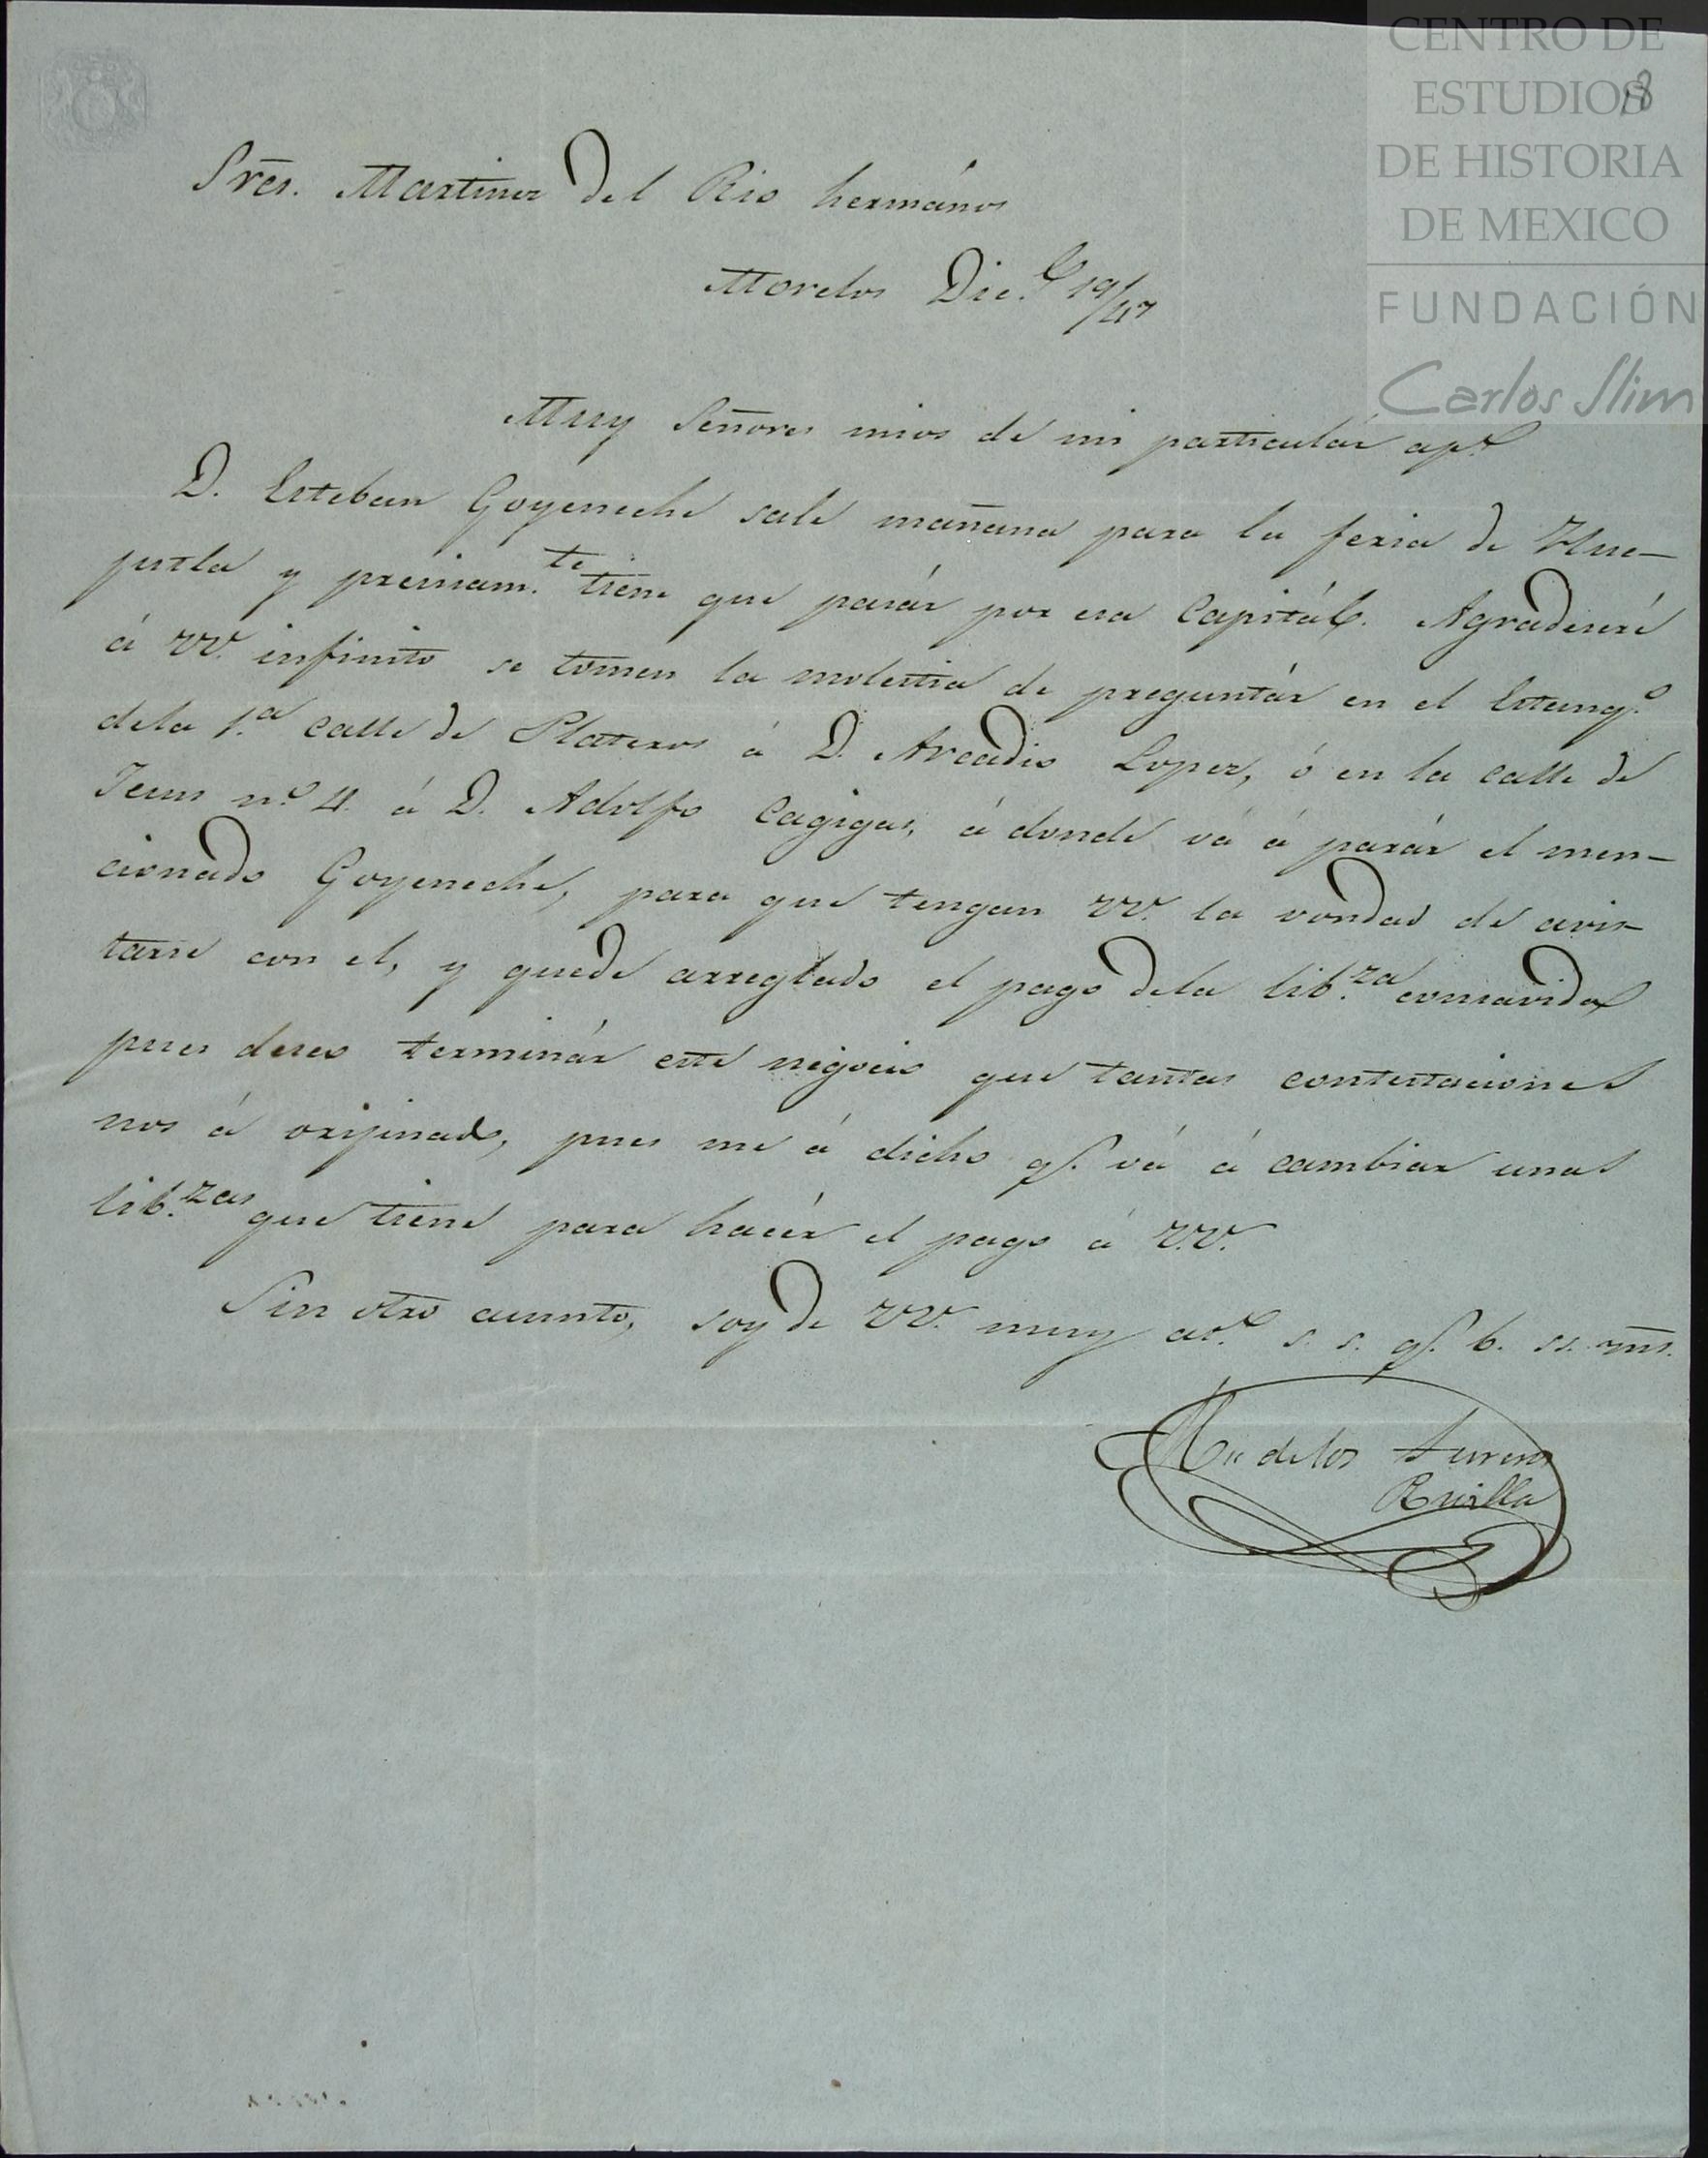 CENTRO DE
ESTUDIOS
DE HISTORIA
DE MEXICO
FUNDACIÓN
Carlos Slim
18
Sres. Martinez del Rio hermános
Morelos Dic.e 19/47
Muy Señores mios de mi particulár ap.o
D. Esteban Goyeneche sale mañana para la feria de Hue-
jutla y precisam.te tiene que pasár por esa Capitál. Agradeceré
á VV. infinito se tomen la molestia de preguntár en el Estanq.o
dela 1.a calle de Plateros á D. Arcadio Lopez, ó en la calle de
Jesus n.o 4. á D. Adolfo Cagigas, á donde vá á parár el men-
cionado Goyeneche, para que tengan VV. la vondad de avis-
tarse con el, y quede arreglado el pago dela lib.za consavida
pues deseo terminár este negocio que tantas contestaciones
nos á orijinado, pues me á dicho q.e vá á cambiar unas
lib.zas que tiene para hacér el pago á V.V.
Sin otro asunto, soy de VV. muy at.o s. s. q. b. ss. ms.
M. de los